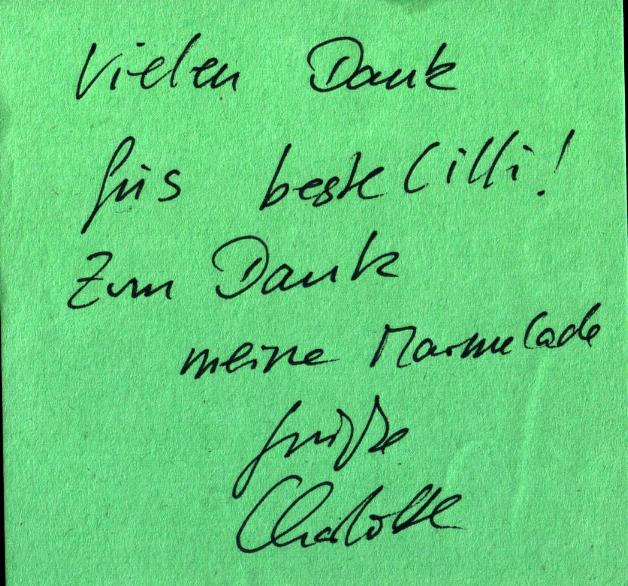 Vielen Dank
fürs beste Cilli!
Zum Dank
meine Marmelade
Grüße
Charlotte